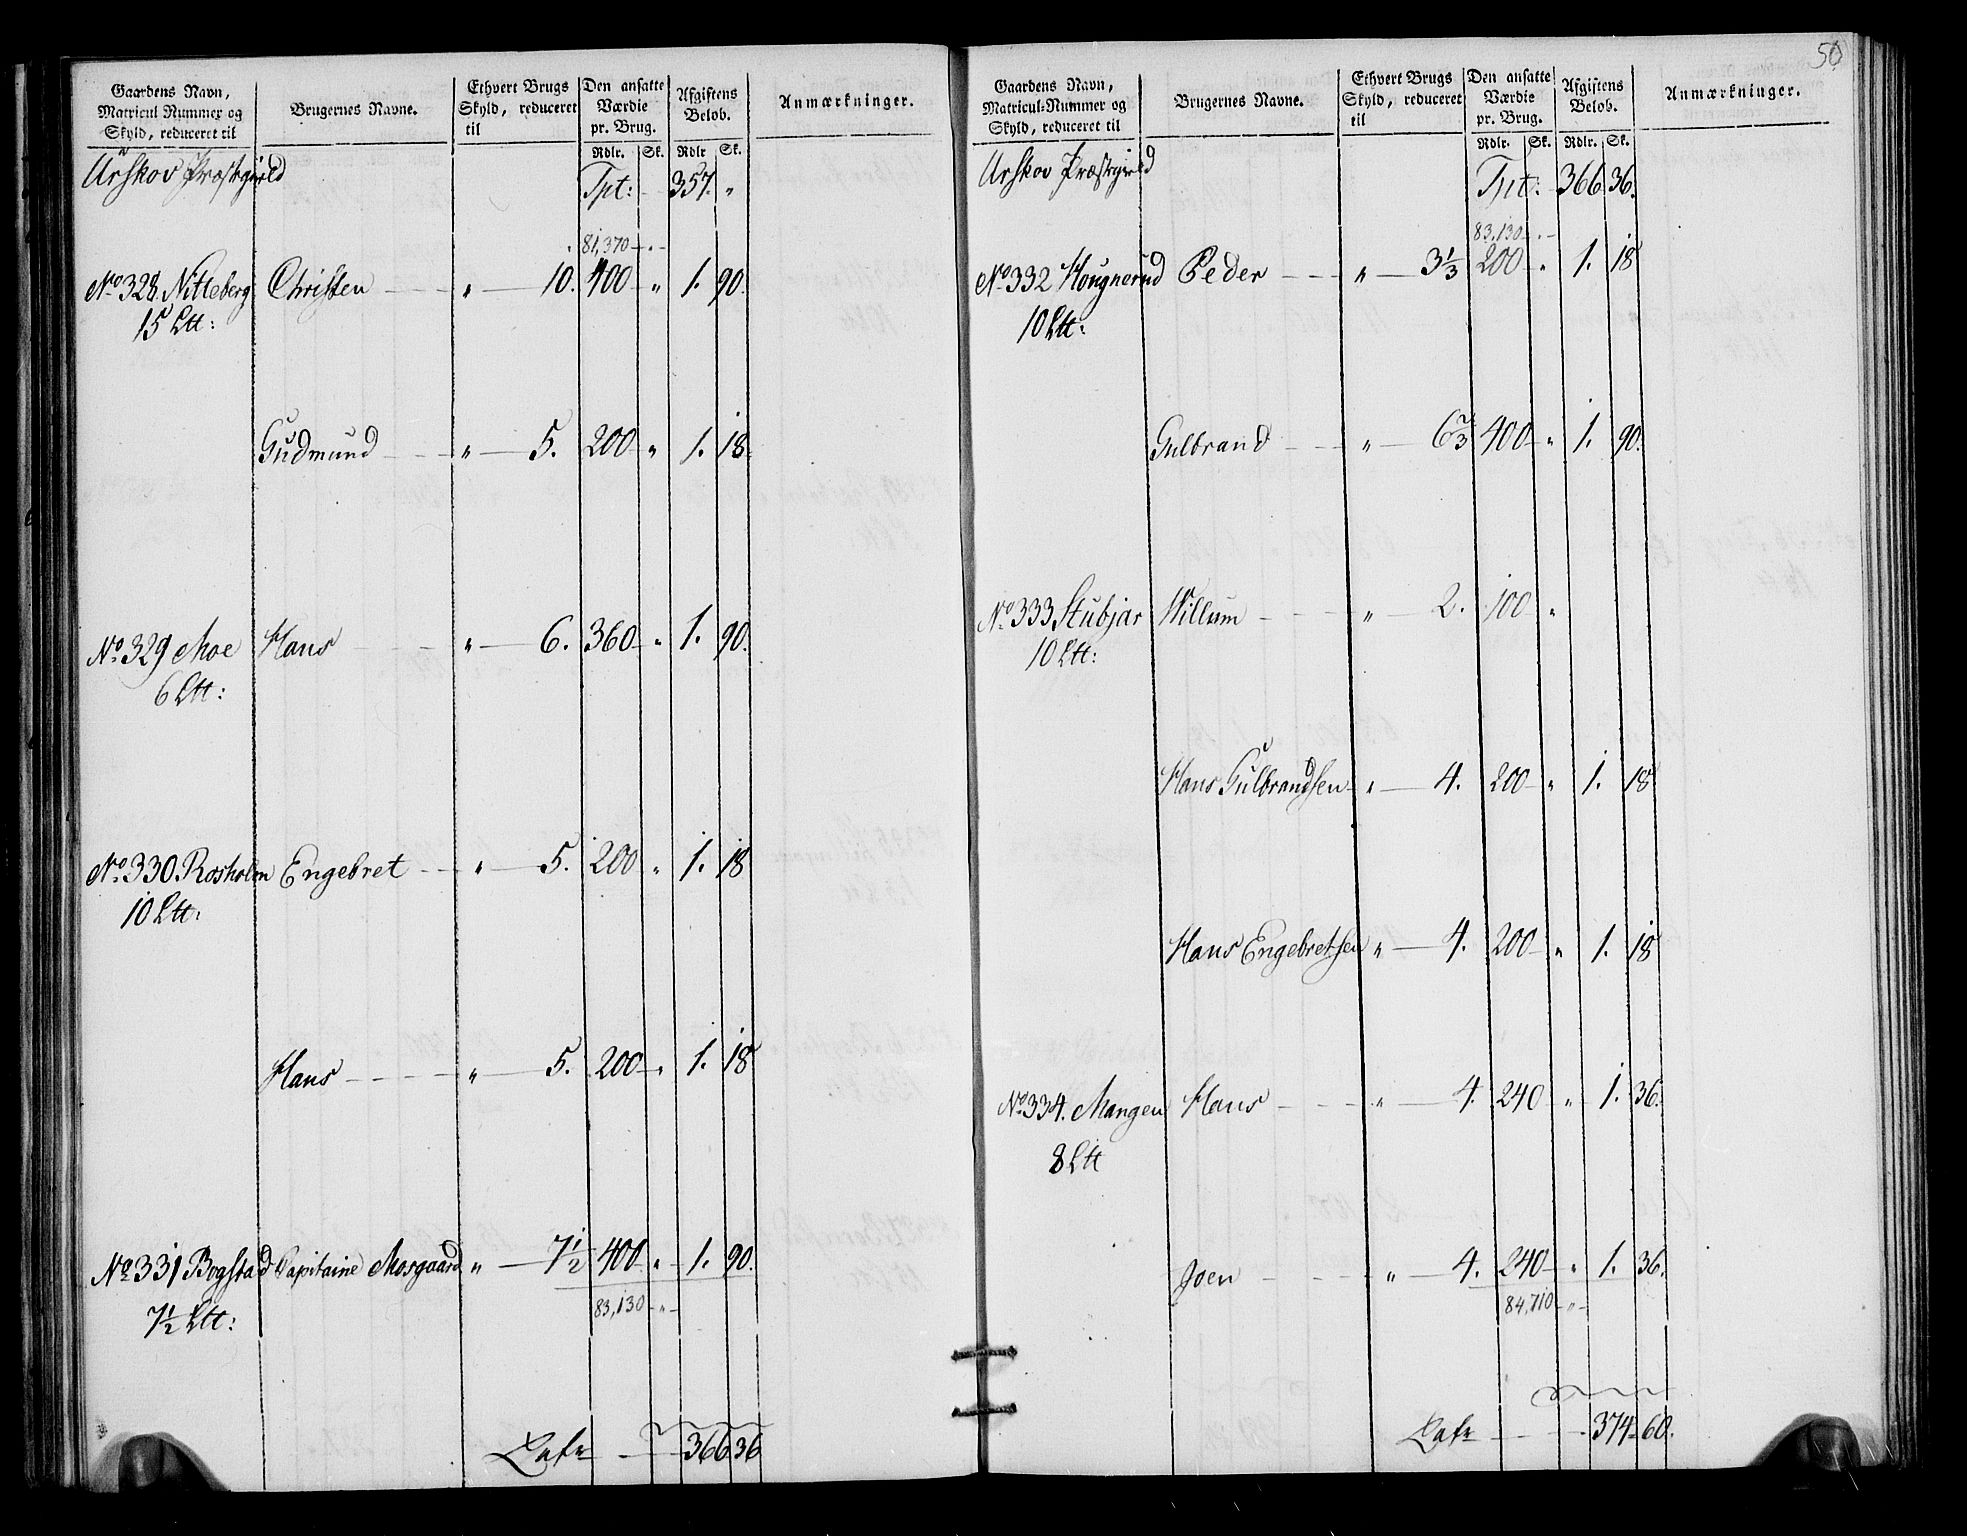 Gaardens Navn, Matricul Nummer og Skyld, reduceret til | Brugernes Navne. | Ethvert Brugs Skyld, reduceret til | Den ansatte Værdie pr. Brug. | Afgiftens Beløb. | Anmærkninger.
Rdlr. | Sk. | Rdlr | Sk.
Urskov Præstegield Tpt: - 357. „
81,370 - „ -
No 328. Nitteberg Christen „ 10. 400 „ 1. 90.
15 Ltt:
Gudmund „ 5. 200 „ 1. 18.
No 329 Moe Hans „ 6. 360 „ 1. 90.
6 Ltt:
No 330. Rosholm Engebret „ 5. 200 „ 1. 18
10 Ltt:
Hans „ 5. 200 „ 1. 18
No 331 Bogstad Capitaine Mosgaard „ 7½ 400 „ 1. 90.
7½ Ltt:
83,130 - „ -
Lats - 366 36
50
Gaardens Navn, Matricul-Nummer og Skyld, reduceret til | Brugernes Navne. | Ethvert Brugs Skyld, reduceret til | Den ansatte Værdie pr. Brug. | Afgiftens Beløb. | Anmærkninger.
Rdlr. | Sk. | Rdlr. | Sk.
Urskov Præstegield Tpt: - 366 36.
83,130 - „ -
No 332 Hougnerud Peder „ 3⅓ 200 „ 1. 18
10 Ltt:
Gulbrand „ 6⅔ 400 „ 1. 90.
No 333 Stubjar Willum „ 2. 100 „
10 Ltt:
Hans Gulbrandsen „ 4. 200 „ 1. 18
Hans Engebretsen „ 4. 200 „ 1. 18
No 334. Mangen Hans „ 4. 240 „ 1. 36.
8 Ltt
Joen „ 4. 240 „ 1. 36.
84,710 - „ -
Lats - 374 60.